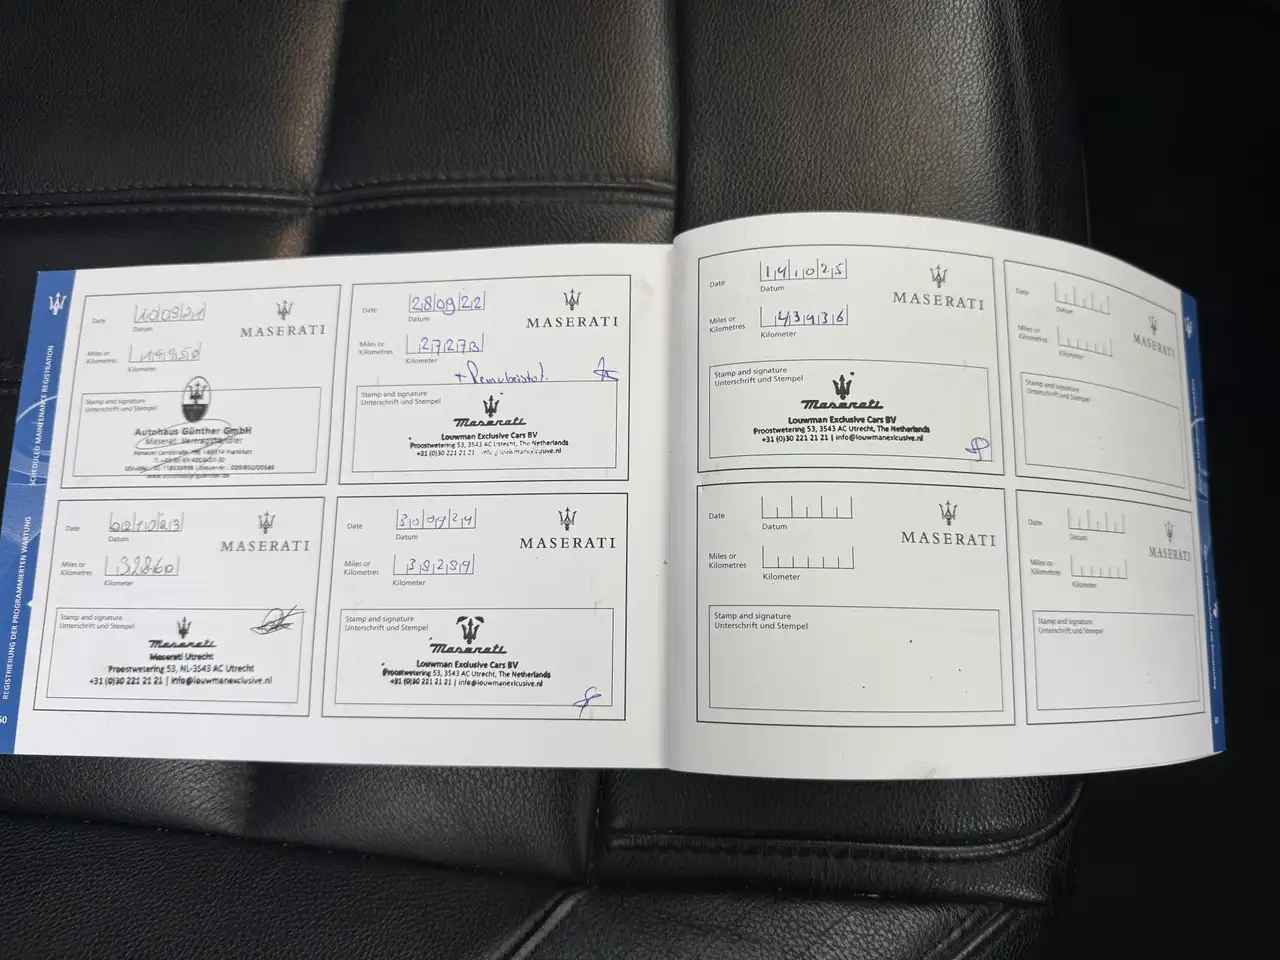 SCHEDULED MAINTENANCE REGISTRATION
REGISTRIERUNG DER PROGRAMMIERTEN WARTUNG
Date
10 09 21
Datum
MASERATI
Miles or
Kilometres
19950
Kilometer
Stamp and signature
Unterschrift und Stempel
Autohaus Günther GmbH
Maserati Vertragshändler
Date
28 09 22
Datum
MASERATI
Miles or
Kilometres
27273
Kilometer
Stamp and signature
Unterschrift und Stempel
Maserati
Louwman Exclusive Cars BV
Proostwetering 53, 3543 AC Utrecht, The Netherlands
+31 (0)30 221 21 21 | info@louwmanexclusive.nl
Date
02 10 23
Datum
MASERATI
Miles or
Kilometres
32860
Kilometer
Stamp and signature
Unterschrift und Stempel
Maserati
Maserati Utrecht
Proostwetering 53, NL-3543 AC Utrecht
+31 (0)30 221 21 21 | info@louwmanexclusive.nl
Date
30 09 24
Datum
MASERATI
Miles or
Kilometres
38289
Kilometer
Stamp and signature
Unterschrift und Stempel
Maserati
Louwman Exclusive Cars BV
Proostwetering 53, 3543 AC Utrecht, The Netherlands
+31 (0)30 221 21 21 | info@louwmanexlcusive.nl
Date
14 10 25
Datum
MASERATI
Miles or
Kilometres
43936
Kilometer
Stamp and signature
Unterschrift und Stempel
Maserati
Louwman Exclusive Cars BV
Proostwetering 53, 3543 AC Utrecht, The Netherlands
+31 (0)30 221 21 21 | info@louwmanexclusive.nl
Date
Datum
MASERATI
Miles or
Kilometres
Kilometer
Stamp and signature
Unterschrift und Stempel
Date
Datum
MASERATI
Miles or
Kilometres
Kilometer
Stamp and signature
Unterschrift und Stempel
Date
Datum
MASERATI
Miles or
Kilometres
Kilometer
Stamp and signature
Unterschrift und Stempel